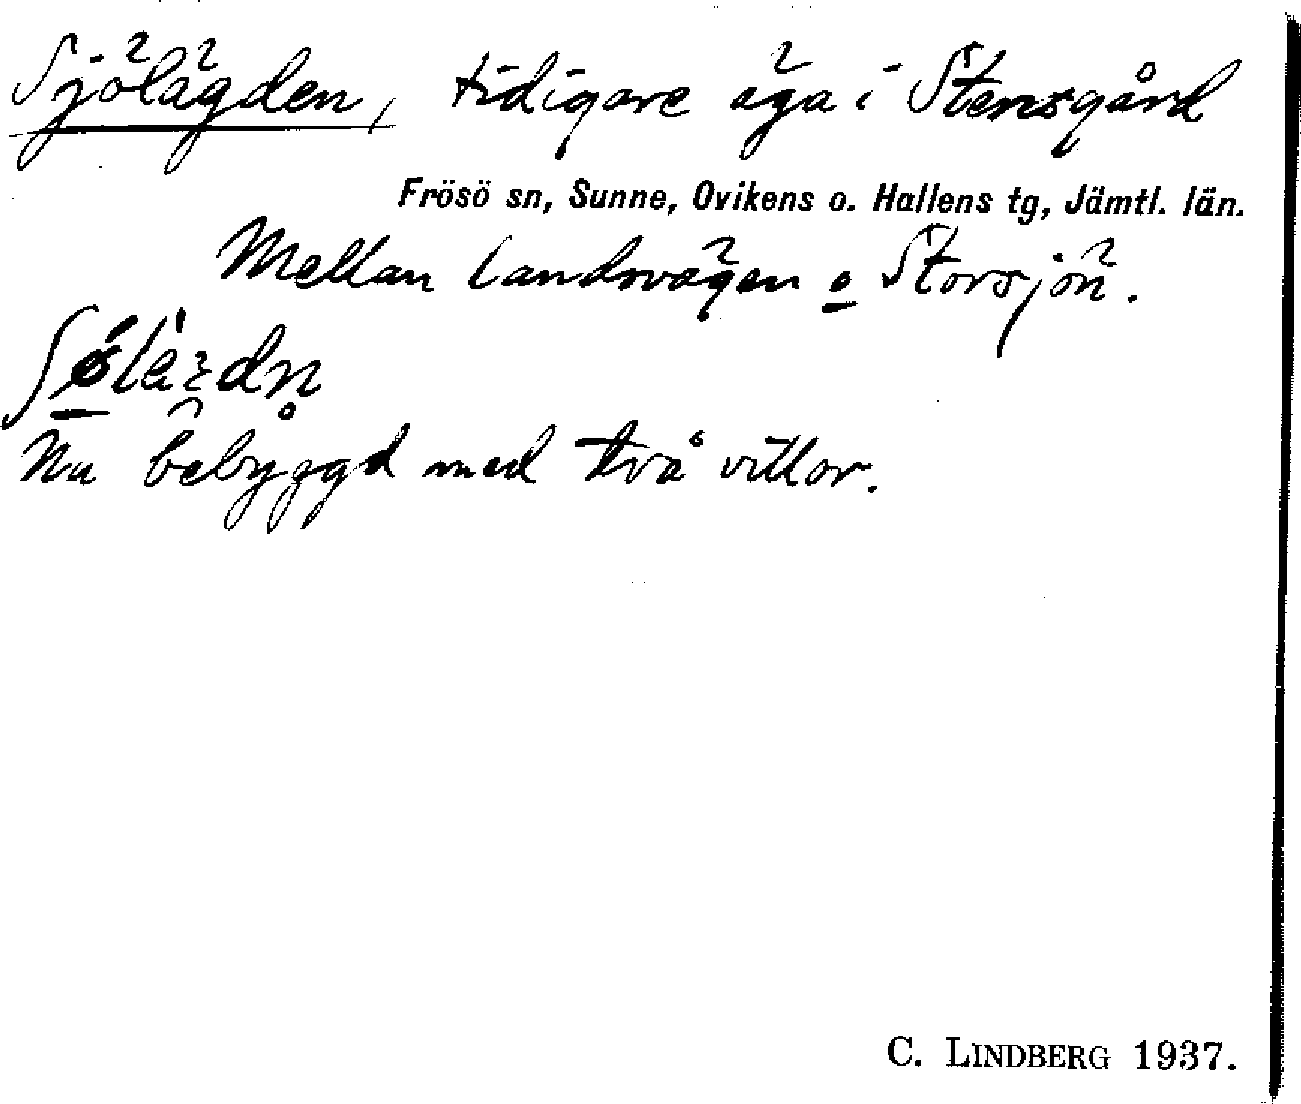 Sjölägden, tidigare äga i Stensgård
Frösö sn, Sunne, Ovikens o. Hallens tg, Jämtl. län.
Mellan landsvägen o Storsjön.
Nu bebyggd med två villor.
C. LINDBERG 1937.